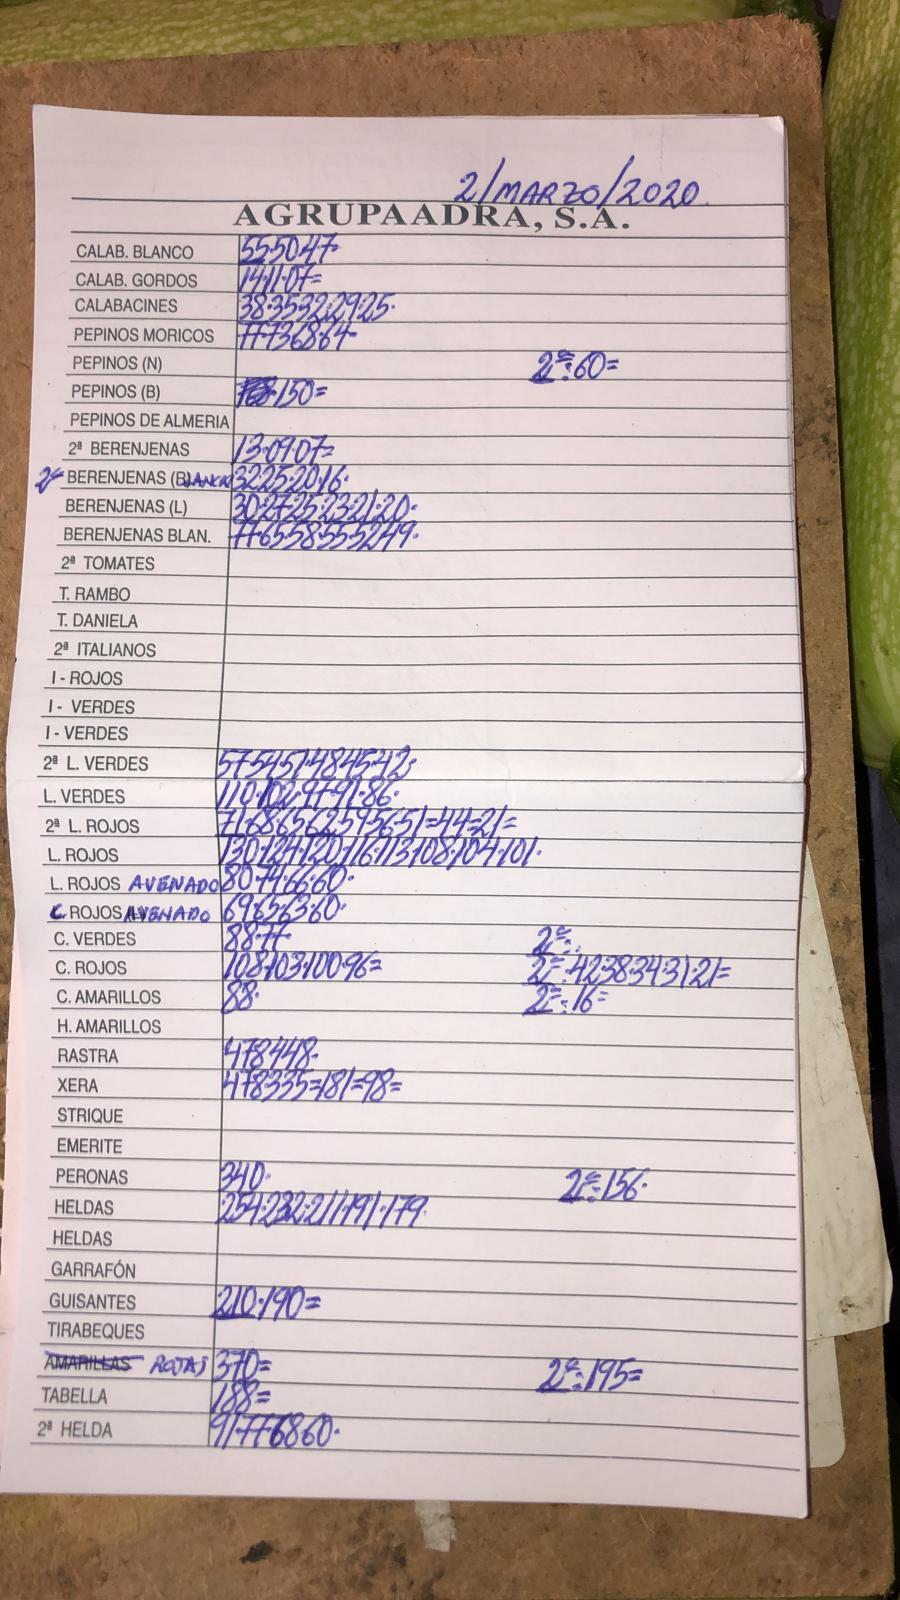 2/MARZO/2020
AGRUPAADRA, S.A.
CALAB. BLANCO 55·50·47=
CALAB. GORDOS 14·11·07=
CALABACINES 38·35·32·29·25·
PEPINOS MORICOS 77·73·68·64·
PEPINOS (N) 2ª:60=
PEPINOS (B) 150=
PEPINOS DE ALMERIA
2ª BERENJENAS 13·09·07=
2ª BERENJENAS (BLANCA) 32·25·20·16·
BERENJENAS (L) 30·27·25·23·21·20·
BERENJENAS BLAN. 77·65·58·55·52·49·
2ª TOMATES
T. RAMBO
T. DANIELA
2ª ITALIANOS
I - ROJOS
I - VERDES
I - VERDES
2ª L. VERDES 57·54·51·48·45·42·
L. VERDES 110·102·97·91·86·
2ª L. ROJOS 71·68·65·62·59·56·51=44=21=
L. ROJOS 130·124·120·116·113·108·104·101·
L. ROJOS AVENADO 80·74·66·60·
C. ROJOS AVENADO 69·65·63·60·
C. VERDES 88·77· 2ª:
C. ROJOS 108·103·100·96= 2ª:42·38·34·31·21=
C. AMARILLOS 88· 2ª:16=
H. AMARILLOS
RASTRA 478·448·
XERA 478·335=181=98=
STRIQUE
EMERITE
PERONAS 340· 2ª:156·
HELDAS 254·232·211·191·179·
HELDAS
GARRAFÓN
GUISANTES 210·190=
TIRABEQUES
AMARILLAS ROJAS 370= 2ª:195=
TABELLA 188=
2ª HELDA 91·77·68·60·